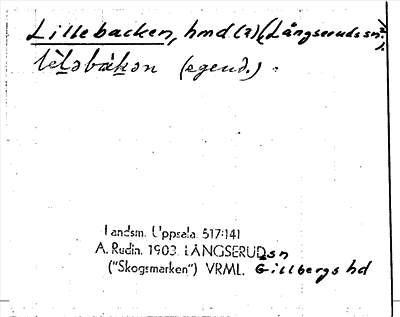 Lillebacken, hmd (?) (Långseruds sn.).
(egend.)
Landsm. Uppsala. 517:141
A. Rudin. 1903. LÅNGSERUDsn
("Skogsmarken") VRML. Gillbergs hd